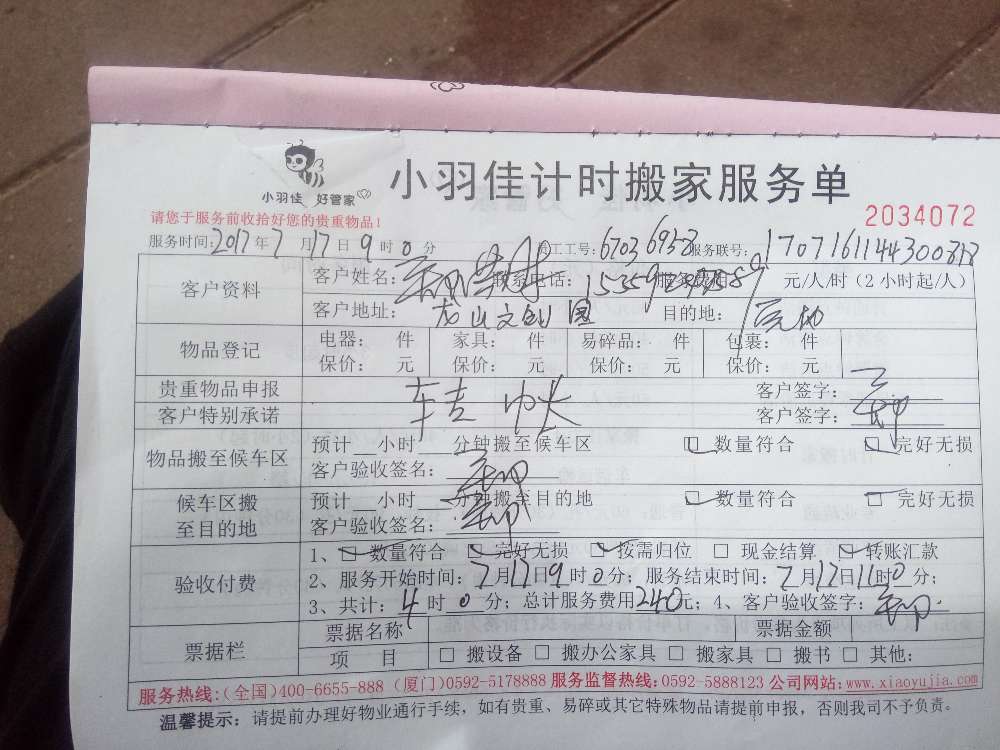 小羽佳 好管家
小羽佳计时搬家服务单
请您于服务前收拾好您的贵重物品！
2034072
服务时间:2017年7月17日9时0分 员工工号:67036958 服务联号:
客户资料
客户姓名: 联系电话: 元/人/时(2小时起/人)
客户地址: 龙山文创园 目的地:
物品登记
电器: 件 家具: 件 易碎品: 件 包裹: 件
保价: 元 保价: 元 保价: 元 保价: 元
贵重物品申报 客户签字:
客户特别承诺 客户签字:
物品搬至候车区
预计__小时__分钟搬至候车区 □ 数量符合 □ 完好无损
客户验收签名:
候车区搬
至目的地
预计__小时__分钟搬至目的地 □ 数量符合 □ 完好无损
客户验收签名:
验收付费
1、□ 数量符合 □ 完好无损 □ 按需归位 □ 现金结算 □ 转账汇款
2、服务开始时间:7月17日9时0分; 服务结束时间:7月17日11时0分;
3、共计: 4时0分; 总计服务费用240元; 4、客户验收签字:
票据栏
票据名称 票据金额
项 目 □ 搬设备 □ 搬办公家具 □ 搬家具 □ 搬书 □ 其他:
服务热线:(全国)400-6655-888 (厦门)0592-5178888 服务监督热线:0592-5888123 公司网站:www.xiaoyujia.com
温馨提示: 请提前办理好物业通行手续，如有贵重、易碎或其它特殊物品请提前申报，否则我司不予负责。